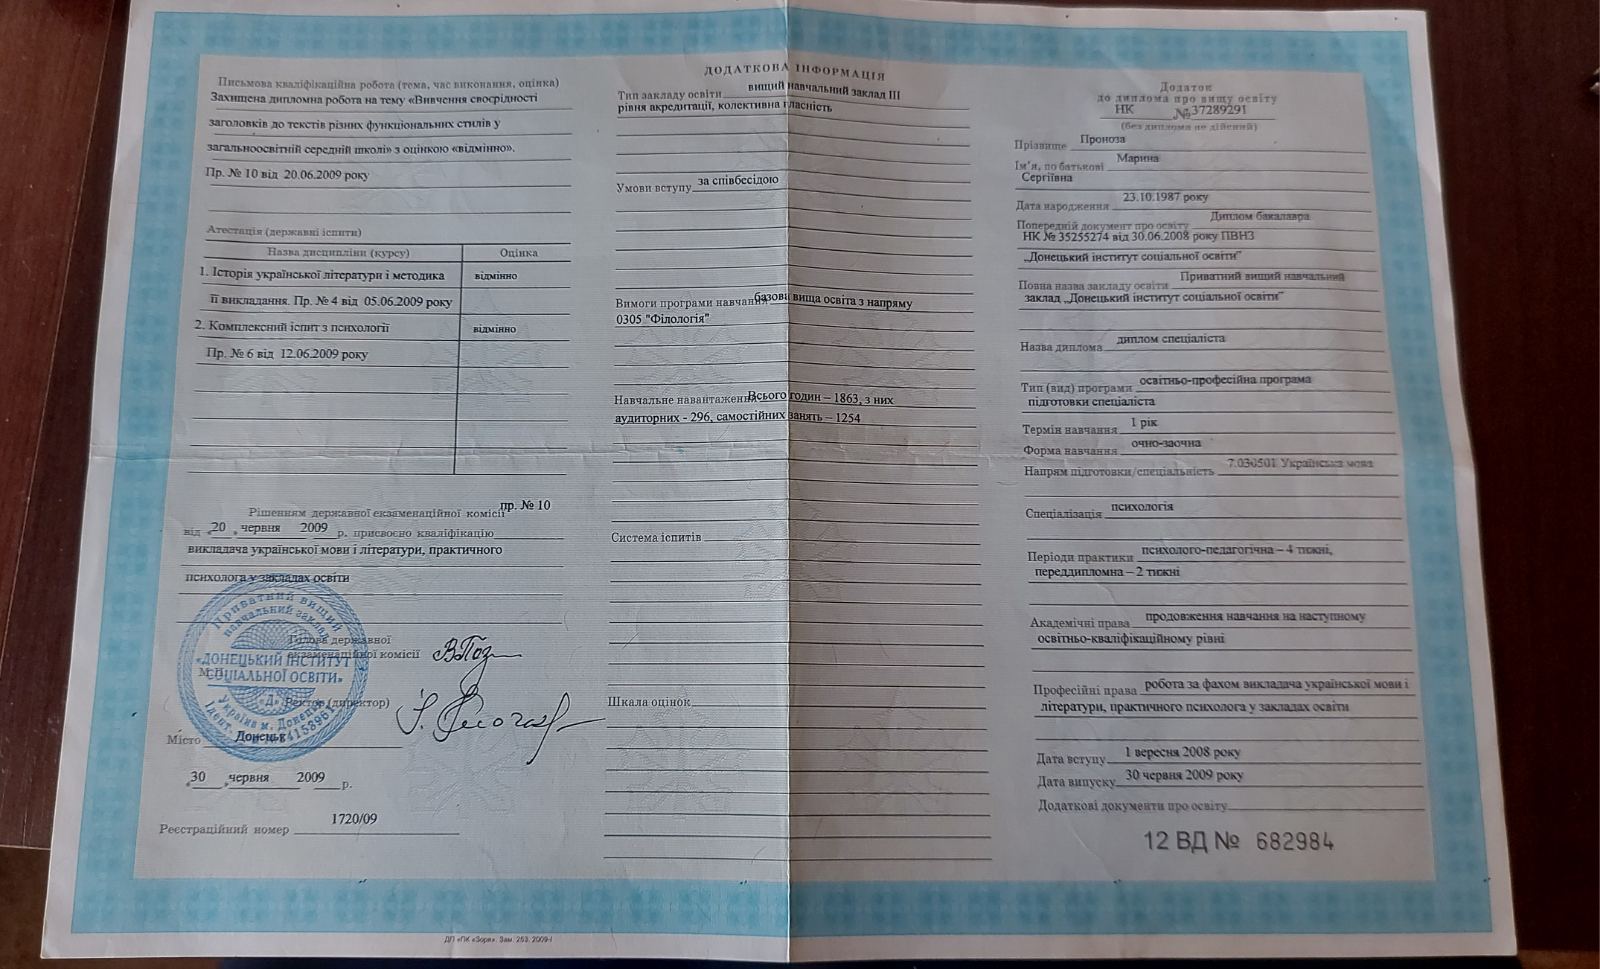 Письмова кваліфікаційна робота (тема, час виконання, оцінка)
Захищена дипломна робота на тему «Вивчення своєрідності
заголовків до текстів різних функціональних стилів у
загальноосвітній середній школі» з оцінкою «відмінно».
Пр. № 10 від 20.06.2009 року
Атестація (державні іспити)
Назва дисципліни (курсу) Оцінка
1. Історія української літератури і методика відмінно
її викладання. Пр. № 4 від 05.06.2009 року
2. Комплексний іспит з психології відмінно
Пр. № 6 від 12.06.2009 року
Рішенням державної екзаменаційної комісії пр. № 10
від „20„ червня 2009 р. присвоєно кваліфікацію
викладача української мови і літератури, практичного
психолога у закладах освіти
Голова державної
екзаменаційної комісії
М.П.
Ректор (директор)
Місто Донецьк
„30„ червня 2009 р.
Реєстраційний номер 1720/09
Приватний вищий
навчальний заклад
«ДОНЕЦЬКИЙ ІНСТИТУТ
СОЦІАЛЬНОЇ ОСВІТИ»
Україна м. Донецьк
ДОДАТКОВА ІНФОРМАЦІЯ
Тип закладу освіти вищий навчальний заклад III
рівня акредитації, колективна власність
Умови вступу за співбесідою
Вимоги програми навчання базова вища освіта з напряму
0305 "Філологія"
Навчальне навантаження Всього годин – 1863, з них
аудиторних - 296, самостійних занять – 1254
Система іспитів
Шкала оцінок
Додаток
до диплома про вищу освіту
НК №37289291
(без диплома не дійсний)
Прізвище Проноза
Ім'я, по батькові Марина
Сергіївна
Дата народження 23.10.1987 року
Попередній документ про освіту Диплом бакалавра
НК № 35255274 від 30.06.2008 року ПВНЗ
„Донецький інститут соціальної освіти"
Повна назва закладу освіти Приватний вищий навчальний
заклад „Донецький інститут соціальної освіти"
Назва диплома диплом спеціаліста
Тип (вид) програми освітньо-професійна програма
підготовки спеціаліста
Термін навчання 1 рік
Форма навчання очно-заочна
Напрям підготовки/спеціальність 7.030501 Українська мова
Спеціалізація психологія
Періоди практики психолого-педагогічна – 4 тижні,
переддипломна – 2 тижні
Академічні права продовження навчання на наступному
освітньо-кваліфікаційному рівні
Професійні права робота за фахом викладача української мови і
літератури, практичного психолога у закладах освіти
Дата вступу 1 вересня 2008 року
Дата випуску 30 червня 2009 року
Додаткові документи про освіту
12 ВД № 682984
ДП «ПК «Зоря». Зам. 253. 2009-I